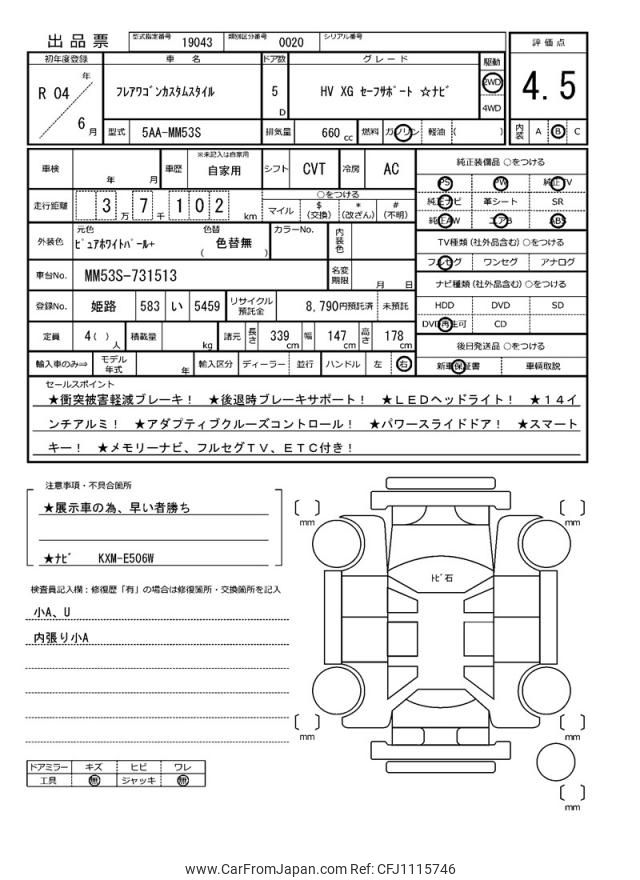 出品票 型式指定番号 19043 類別区分番号 0020 シリアル番号
評価点
4.5
内装 A B C
初年度登録 車名 ドア数 グレード 駆動
R 04 年 6 月
フレアワゴンカスタムスタイル 5 D HV XG セーフサポート ☆ナビ 2WD 4WD
型式 5AA-MM53S 排気量 660 cc 燃料 ガソリン 軽油 ( )
車検 年 月 車歴 ※未記入は自家用 自家用 シフト CVT 冷房 AC
走行距離 3 万 7 千 1 0 2 km ○をつける マイル $ (交換) * (改ざん) # (不明)
外装色 元色 ピュアホワイトパール+ 色替 ( 色替無 ) カラーNo. 内装色
車台No. MM53S-731513 名変期限 月 日
登録No. 姫路 583 い 5459 リサイクル預託金 8,790円預託済 未預託
定員 4( ) 人 積載量 kg 諸元 長さ 339 cm 幅 147 cm 高さ 178 cm
輸入車のみ⇒ モデル年式 年 輸入区分 ディーラー 並行 ハンドル 左 右
純正装備品 ○をつける
PS PW 純正TV
純正ナビ 革シート SR
純正AW エアB ABS
TV種類(社外品含む) ○をつける
フルセグ ワンセグ アナログ
ナビ種類(社外品含む) ○をつける
HDD DVD SD
DVD再生可 CD
後日発送品 ○をつける
新車保証書 車輌取説
セールスポイント
★衝突被害軽減ブレーキ! ★後退時ブレーキサポート! ★LEDヘッドライト! ★14イ
ンチアルミ! ★アダプティブクルーズコントロール! ★パワースライドドア! ★スマート
キー! ★メモリーナビ、フルセグTV、ETC付き!
注意事項・不具合箇所
★展示車の為、早い者勝ち
★ナビ KXM-E506W
検査員記入欄:修復歴「有」の場合は修復箇所・交換箇所を記入
小A、U
内張り小A
ドアミラー キズ ヒビ ワレ
工具 無 ジャッキ 無
mm
mm
トビ石
mm
mm
mm
www.CarFromJapan.com Ref: CFJ1115746